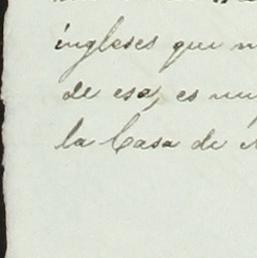 ingleses que
de esa, es muy
la Casa de